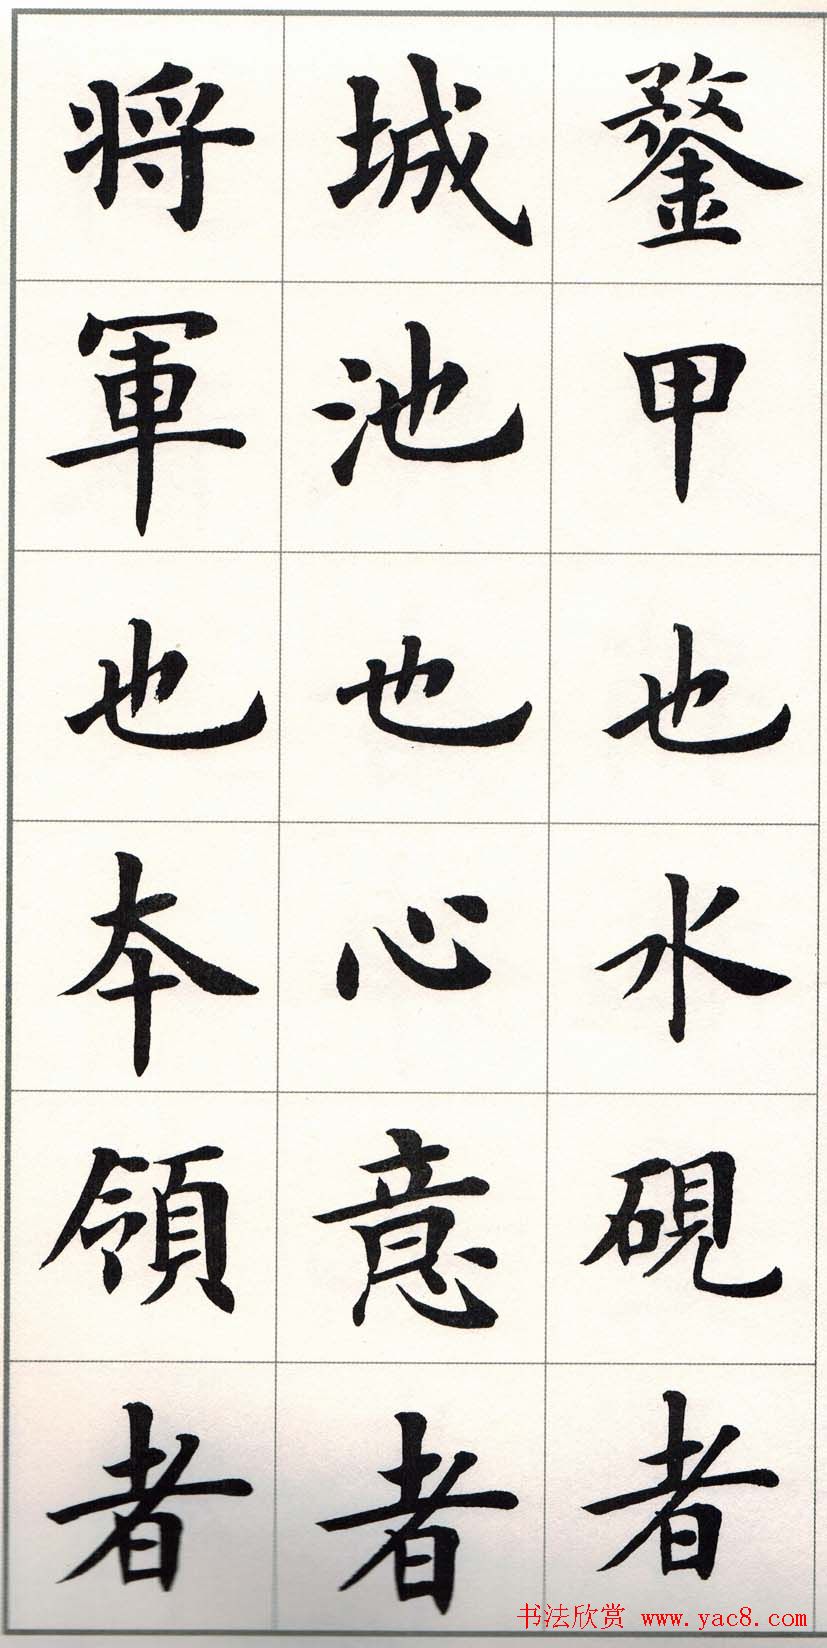 鍪甲也水硯者
城池也心意者
将軍也本領者
书法欣赏 www.yac8.com